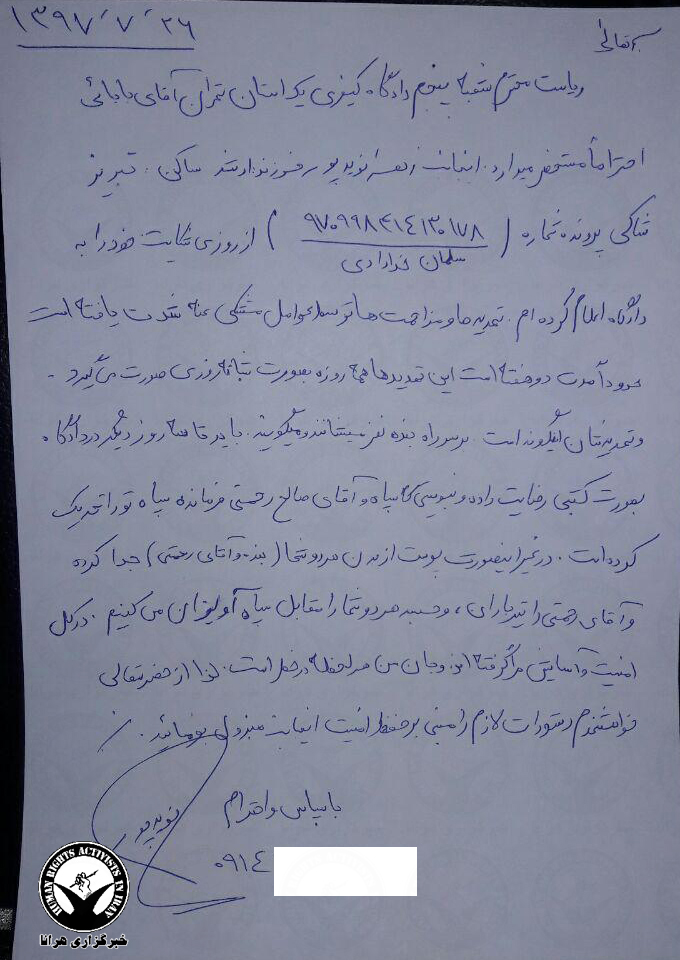 بسمه تعالی
۱۳۹۷/۷/۲۶
ریاست محترم شعبه پنجم دادگاه کیفری یک استان تهران آقای بابائی
احتراماً مستحضر میدارد. اینجانب زهرا نویدپور فرزند ارشد ساکن. تبریز
شاکی پرونده شماره (۹۷۰۹۹۸۴۱۴۱۳۰۱۷۸) از روزی شکایت خود را به
سلمان خدادادی
دادگاه اعلام کرده ام. تهدیدها و مزاحمت ها توسط عوامل مشتکی عنه شدت یافته است
حدوداً مدت دو هفته است این تهدیدها همه روزه بصورت شبانه روزی صورت می گیرد.
و تهدیدشان اینگونه است. بر سر راه بنده نفر میفرستند و میگویند. باید تا سه روز دیگر در دادگاه.
بصورت کتبی رضایت داده و بنویسی که سپاه و آقای صالح رحمتی فرمانده سپاه تو را تحریک
کرده است. در غیر اینصورت پوست از بدن هر دو شما (بنده و آقای رحمتی) جدا کرده
و آقای رحمتی را تیرباران، و جسد هر دو شما را مقابل سپاه آویزان می کنیم. در کل
امنیت و آسایش مرا گرفته اند و جان من هر لحظه در خطر است. لذا از حضرتعالی
خواستمندم دستورات لازم را مبنی بر حفظ امنیت اینجانب مبذول بفرمائید.
با سپاس و احترام
نویدپور
۰۹۱۴
HUMAN RIGHTS ACTIVISTS IN IRAN
خبرگزاری هرانا